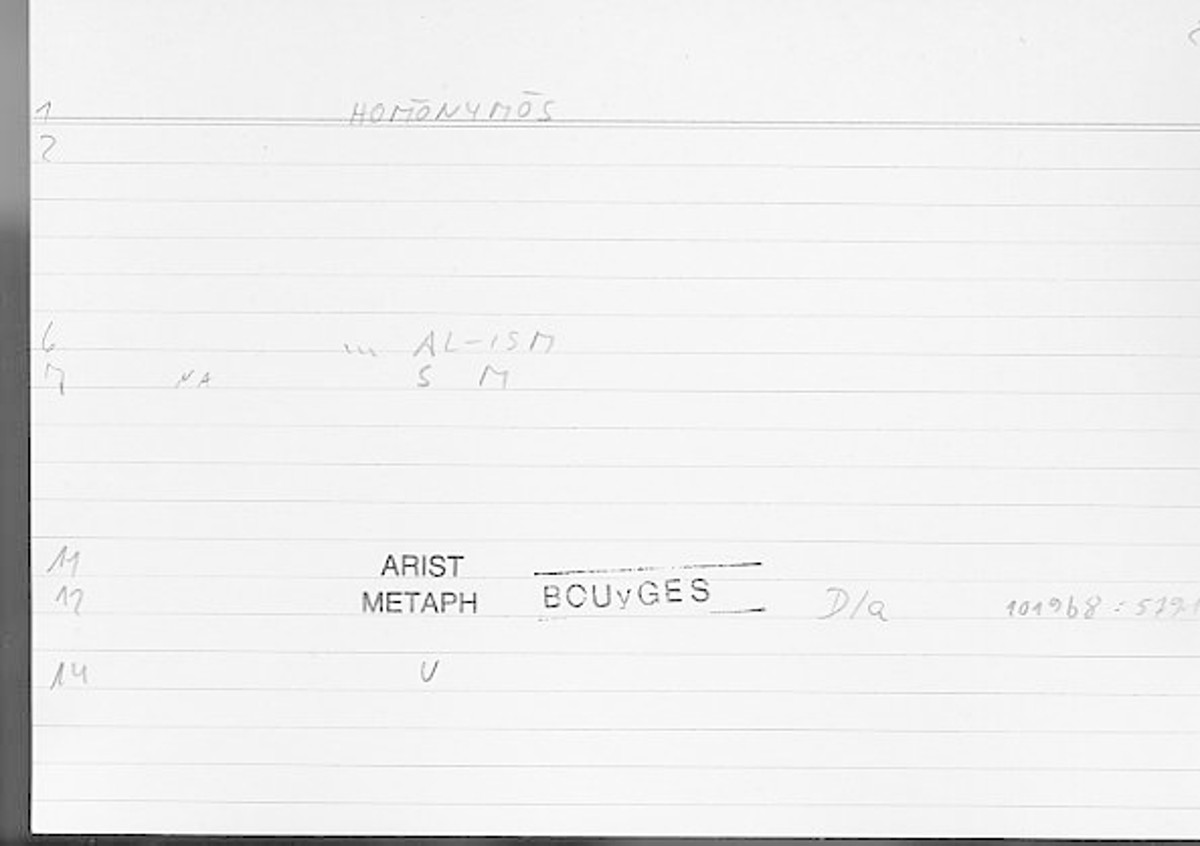 1 HOMŌNYMŌS
2
6 ... AL-ISM
7 NA S M
11 ARIST
12 METAPH BOUyGES D/a 1019b8 : 579
14 U